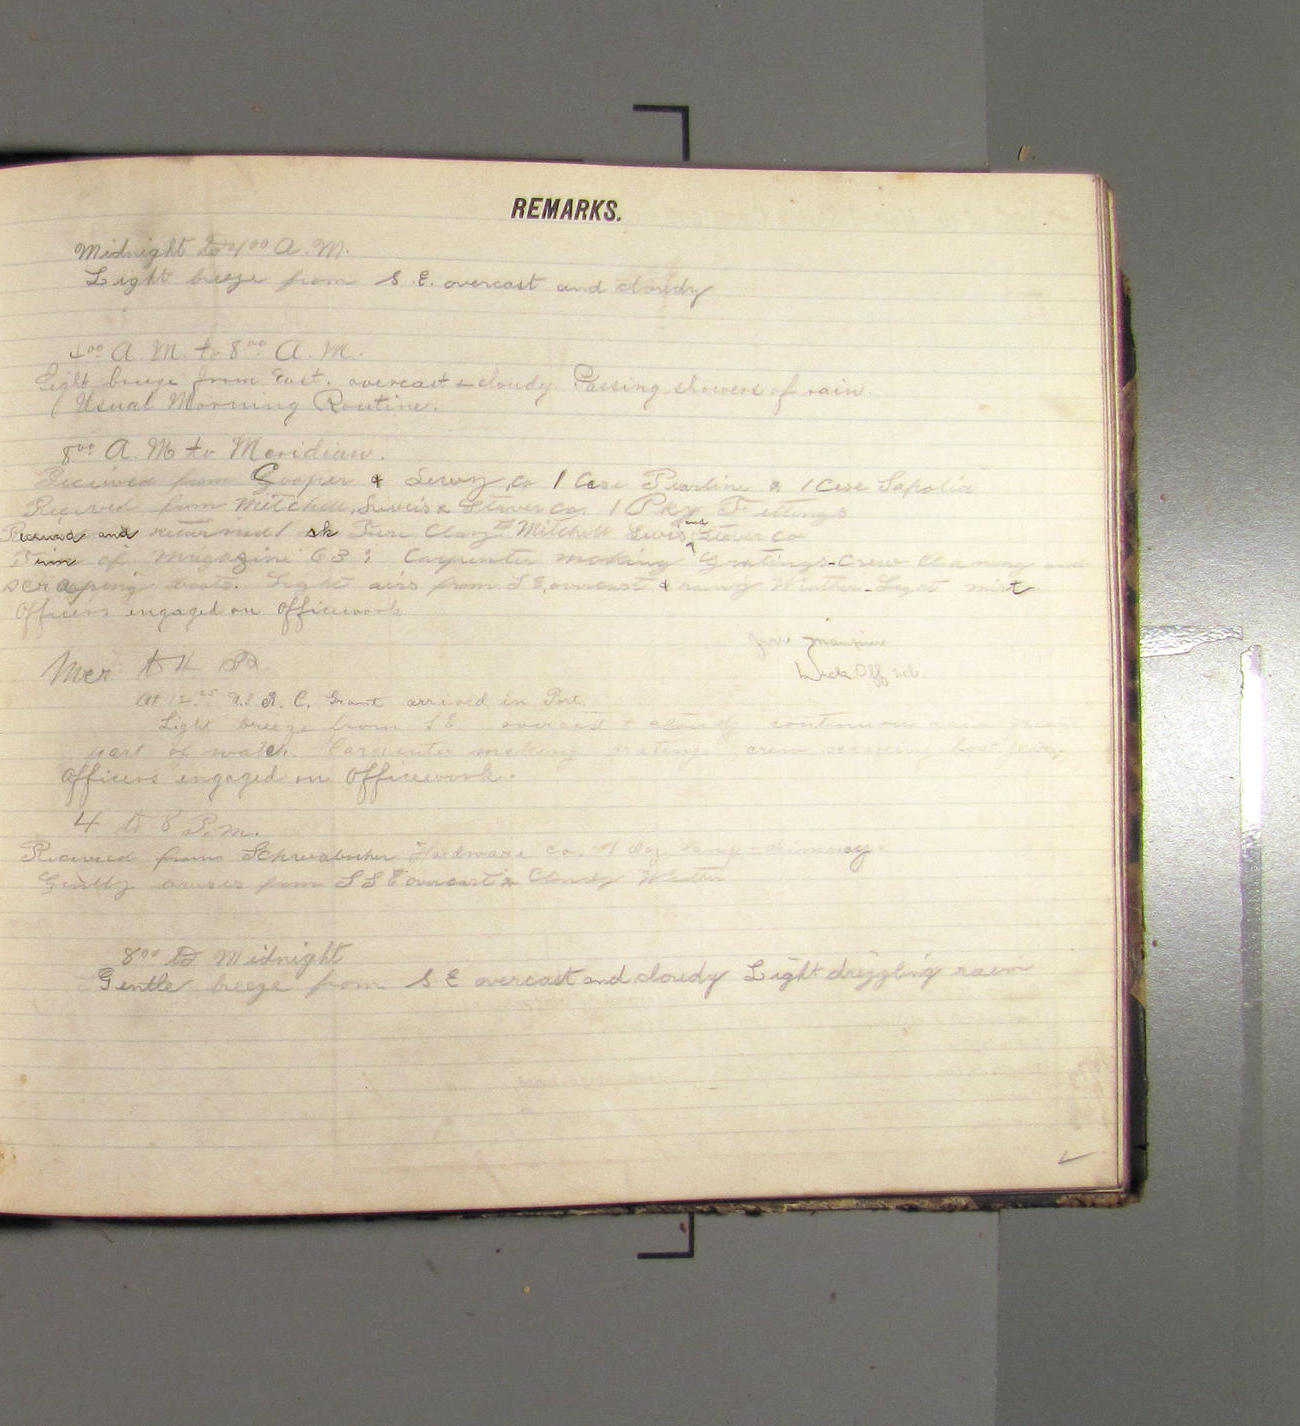 REMARKS.
Midnight to 4⁰⁰ A.M.
Light breeze from S.E. overcast and cloudy
4⁰⁰ A.M. to 8⁰⁰ A.M.
Light breeze from East. overcast & cloudy. Passing showers of rain.
Usual Morning Routine.
8⁰⁰ A.M to Meridian.
Received from Cooper & Levy Co 1 Case Pearline & 1 Case Sapolia
Received from Mitchell, Lewis & Staver Co. 1 Pkg Fittings
Received and returned 1 sk Fire Clay to Mitchell Lewis and Staver Co
Tem of Magazine 63: Carpenter making Gratings-Crew Cleaning and
scraping boats. Light airs from S E, overcast & rainy Weather-Light mist
Officers engaged on Officework
Mer to 4 P.
At 12.²⁵ U.S.S. Grant arrived in Port.
Light breeze from S E overcast & cloudy continuous rain
part of watch. Carpenter making gratings crew scraping boat
Officers engaged on Officework.
4 to 8 P.m.
Received from Schwabacher Hardware co. 1 doz. lamp-chimneys
from S S E overcast & Cloudy Weather
8⁰⁰ to Midnight
Gentle breeze from S E overcast and cloudy Light drizzling rain